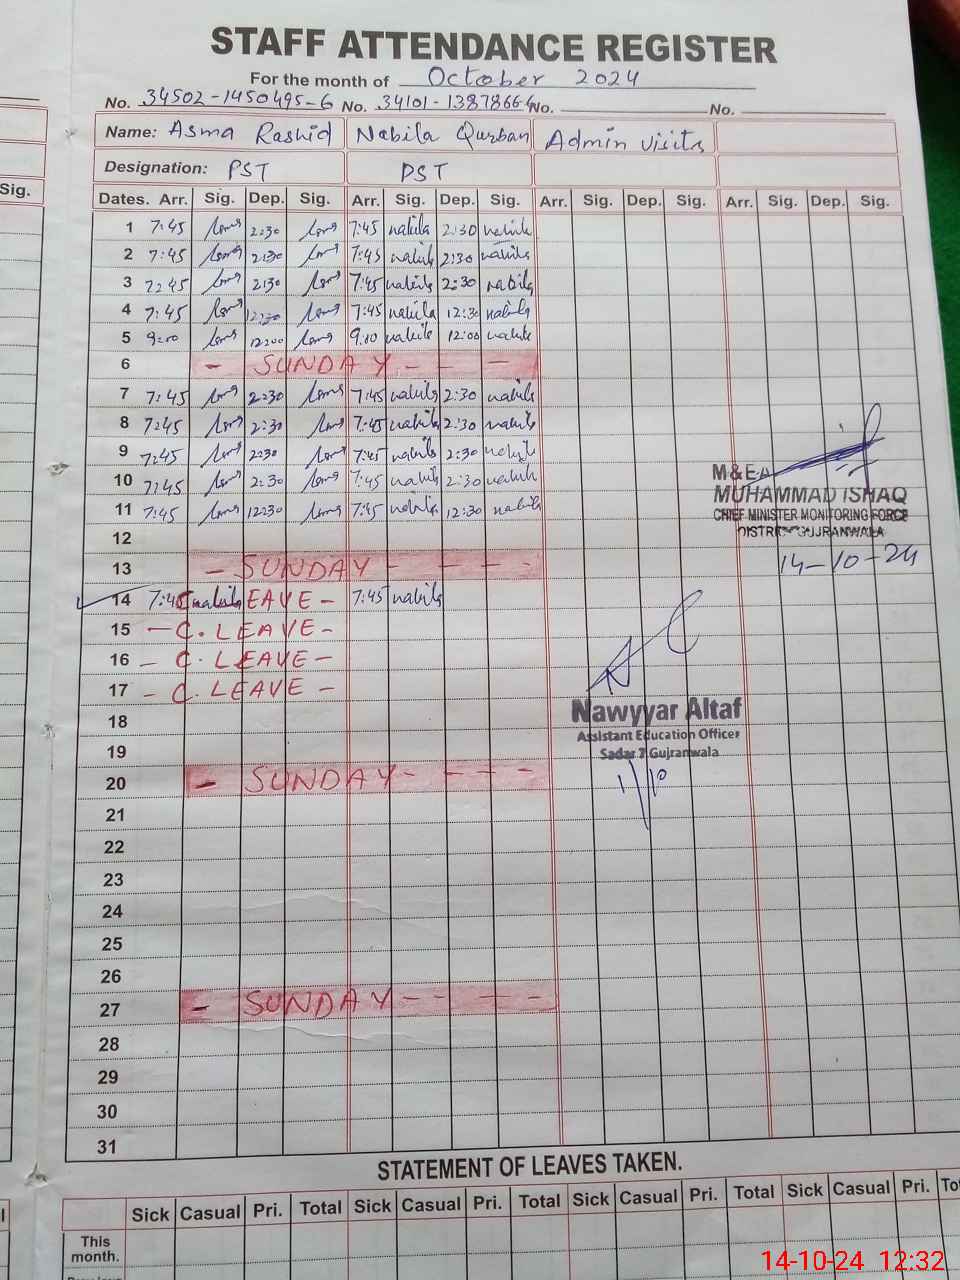 STAFF ATTENDANCE REGISTER
For the month of October 2024
No. 34502-1450495-6 No. 34101-13878664 No. No.
Name: Asma Rashid Nabila Qurban Admin visits
Designation: PST PST
Sig. Dates. Arr. Sig. Dep. Sig. Arr. Sig. Dep. Sig. Arr. Sig. Dep. Sig. Arr. Sig. Dep. Sig.
1 7:45 2:30 7:45 nabila 2:30 nabila
2 7:45 2:30 7:45 nabila 2:30 nabila
3 7:45 2:30 7:45 nabila 2:30 nabila
4 7:45 12:30 7:45 nabila 12:30 nabila
5 9:00 12:00 9:00 nabila 12:00 nabila
6 - SUNDAY - - -
7 7:45 2:30 7:45 nabila 2:30 nabila
8 7:45 2:30 7:45 nabila 2:30 nabila
9 7:45 2:30 7:45 nabila 2:30 nabila
10 7:45 2:30 7:45 nabila 2:30 nabila
11 7:45 12:30 7:45 nabila 12:30 nabila
M&EA
MUHAMMAD ISHAQ
CHIEF MINISTER MONITORING FORCE
DISTRICT GUJRANWALA
14-10-24
12
13 - SUNDAY - - - -
14 7:45 nabila LEAVE - 7:45 nabila
15 - C. LEAVE -
16 - C. LEAVE -
17 - C. LEAVE -
18
Nawyyar Altaf
Assistant Education Officer
Sadar 7 Gujranwala
1/10
19
20 - SUNDAY - - - -
21
22
23
24
25
26
27 - SUNDAY - - - -
28
29
30
31
STATEMENT OF LEAVES TAKEN.
Sick Casual Pri. Total Sick Casual Pri. Total Sick Casual Pri. Total Sick Casual Pri. To
This
month.
14-10-24 12:32